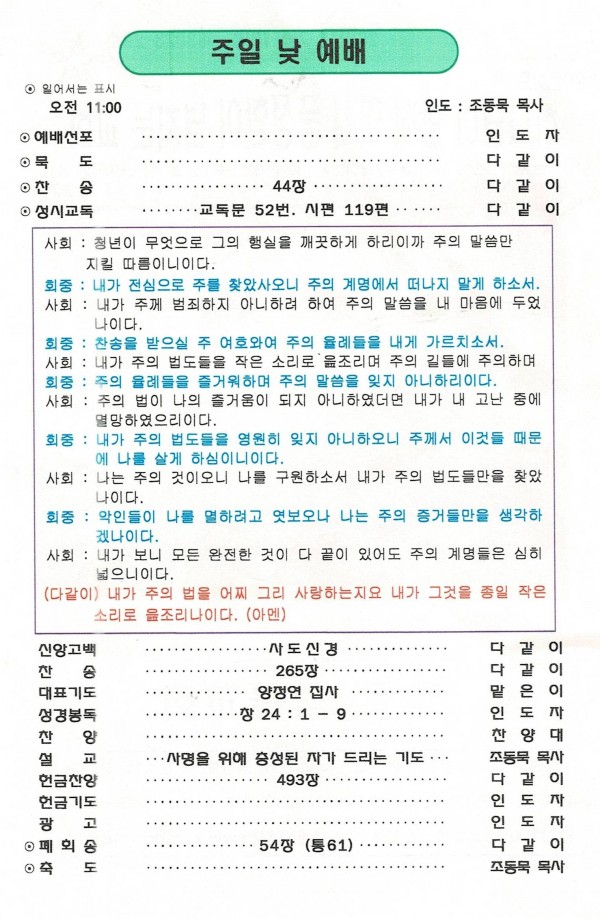 주일 낮 예배
⊙ 일어서는 표시
오전 11:00 인도 : 조동묵 목사
⊙예배선포 ································ 인 도 자
⊙묵 도 ································ 다 같 이
⊙찬 송 ················ 44장 ················ 다 같 이
⊙성시교독 ········교독문 52번. 시편 119편 ·· ···· 다 같 이
사회 : 청년이 무엇으로 그의 행실을 깨끗하게 하리이까 주의 말씀만
지킬 따름이니이다.
회중 : 내가 전심으로 주를 찾았사오니 주의 계명에서 떠나지 말게 하소서.
사회 : 내가 주께 범죄하지 아니하려 하여 주의 말씀을 내 마음에 두었
나이다.
회중 : 찬송을 받으실 주 여호와여 주의 율례들을 내게 가르치소서.
사회 : 내가 주의 법도들을 작은 소리로 읊조리며 주의 길들에 주의하며
회중 : 주의 율례들을 즐거워하며 주의 말씀을 잊지 아니하리이다.
사회 : 주의 법이 나의 즐거움이 되지 아니하였더면 내가 내 고난 중에
멸망하였으리이다.
회중 : 내가 주의 법도들을 영원히 잊지 아니하오니 주께서 이것들 때문
에 나를 살게 하심이니이다.
사회 : 나는 주의 것이오니 나를 구원하소서 내가 주의 법도들만을 찾았
나이다.
회중 : 악인들이 나를 멸하려고 엿보오나 나는 주의 증거들만을 생각하
겠나이다.
사회 : 내가 보니 모든 완전한 것이 다 끝이 있어도 주의 계명들은 심히
넓으니이다.
(다같이) 내가 주의 법을 어찌 그리 사랑하는지요 내가 그것을 종일 작은
소리로 읊조리나이다. (아멘)
신앙고백 ················사도신경 ·············· 다 같 이
찬 송 ················ 265장················ 다 같 이
대표기도 ·············· 양정연 집사 ············ 맡 은 이
성경봉독 ············창 24 : 1 - 9············ 인 도 자
찬 양 ································ 찬 양 대
설 교 ···사명을 위해 충성된 자가 드리는 기도 ··· 조동묵 목사
헌금찬양 ················ 493장················ 다 같 이
헌금기도 ································ 인 도 자
광 고 ································ 인 도 자
⊙폐 회 송 ·············· 54장 (통61) ············ 다 같 이
⊙축 도 ································ 조동묵 목사